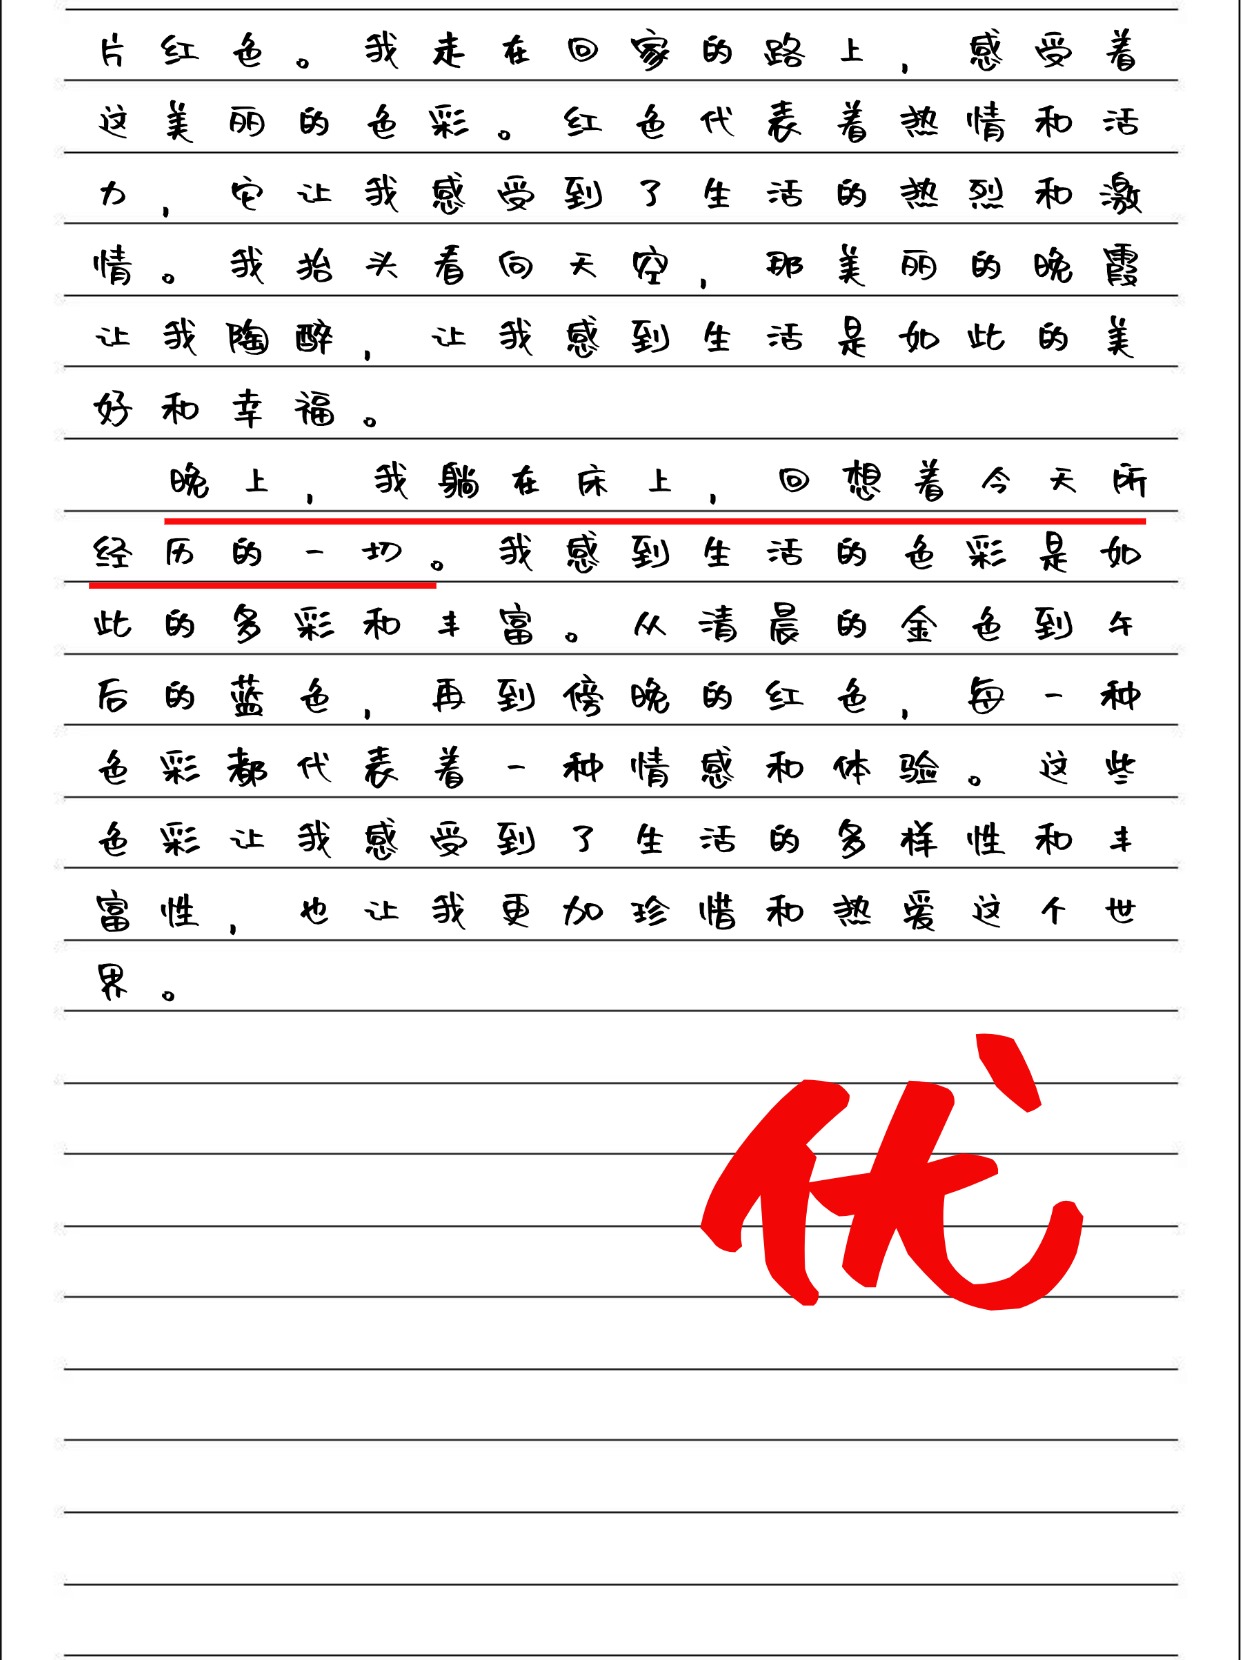 片红色。我走在回家的路上，感受着
这美丽的色彩。红色代表着热情和活
力，它让我感受到了生活的热烈和激
情。我抬头看向天空，那美丽的晚霞
让我陶醉，让我感到生活是如此的美
好和幸福。
晚上，我躺在床上，回想着今天所
经历的一切。我感到生活的色彩是如
此的多彩和丰富。从清晨的金色到午
后的蓝色，再到傍晚的红色，每一种
色彩都代表着一种情感和体验。这些
色彩让我感受到了生活的多样性和丰
富性，也让我更加珍惜和热爱这个世
界。
优